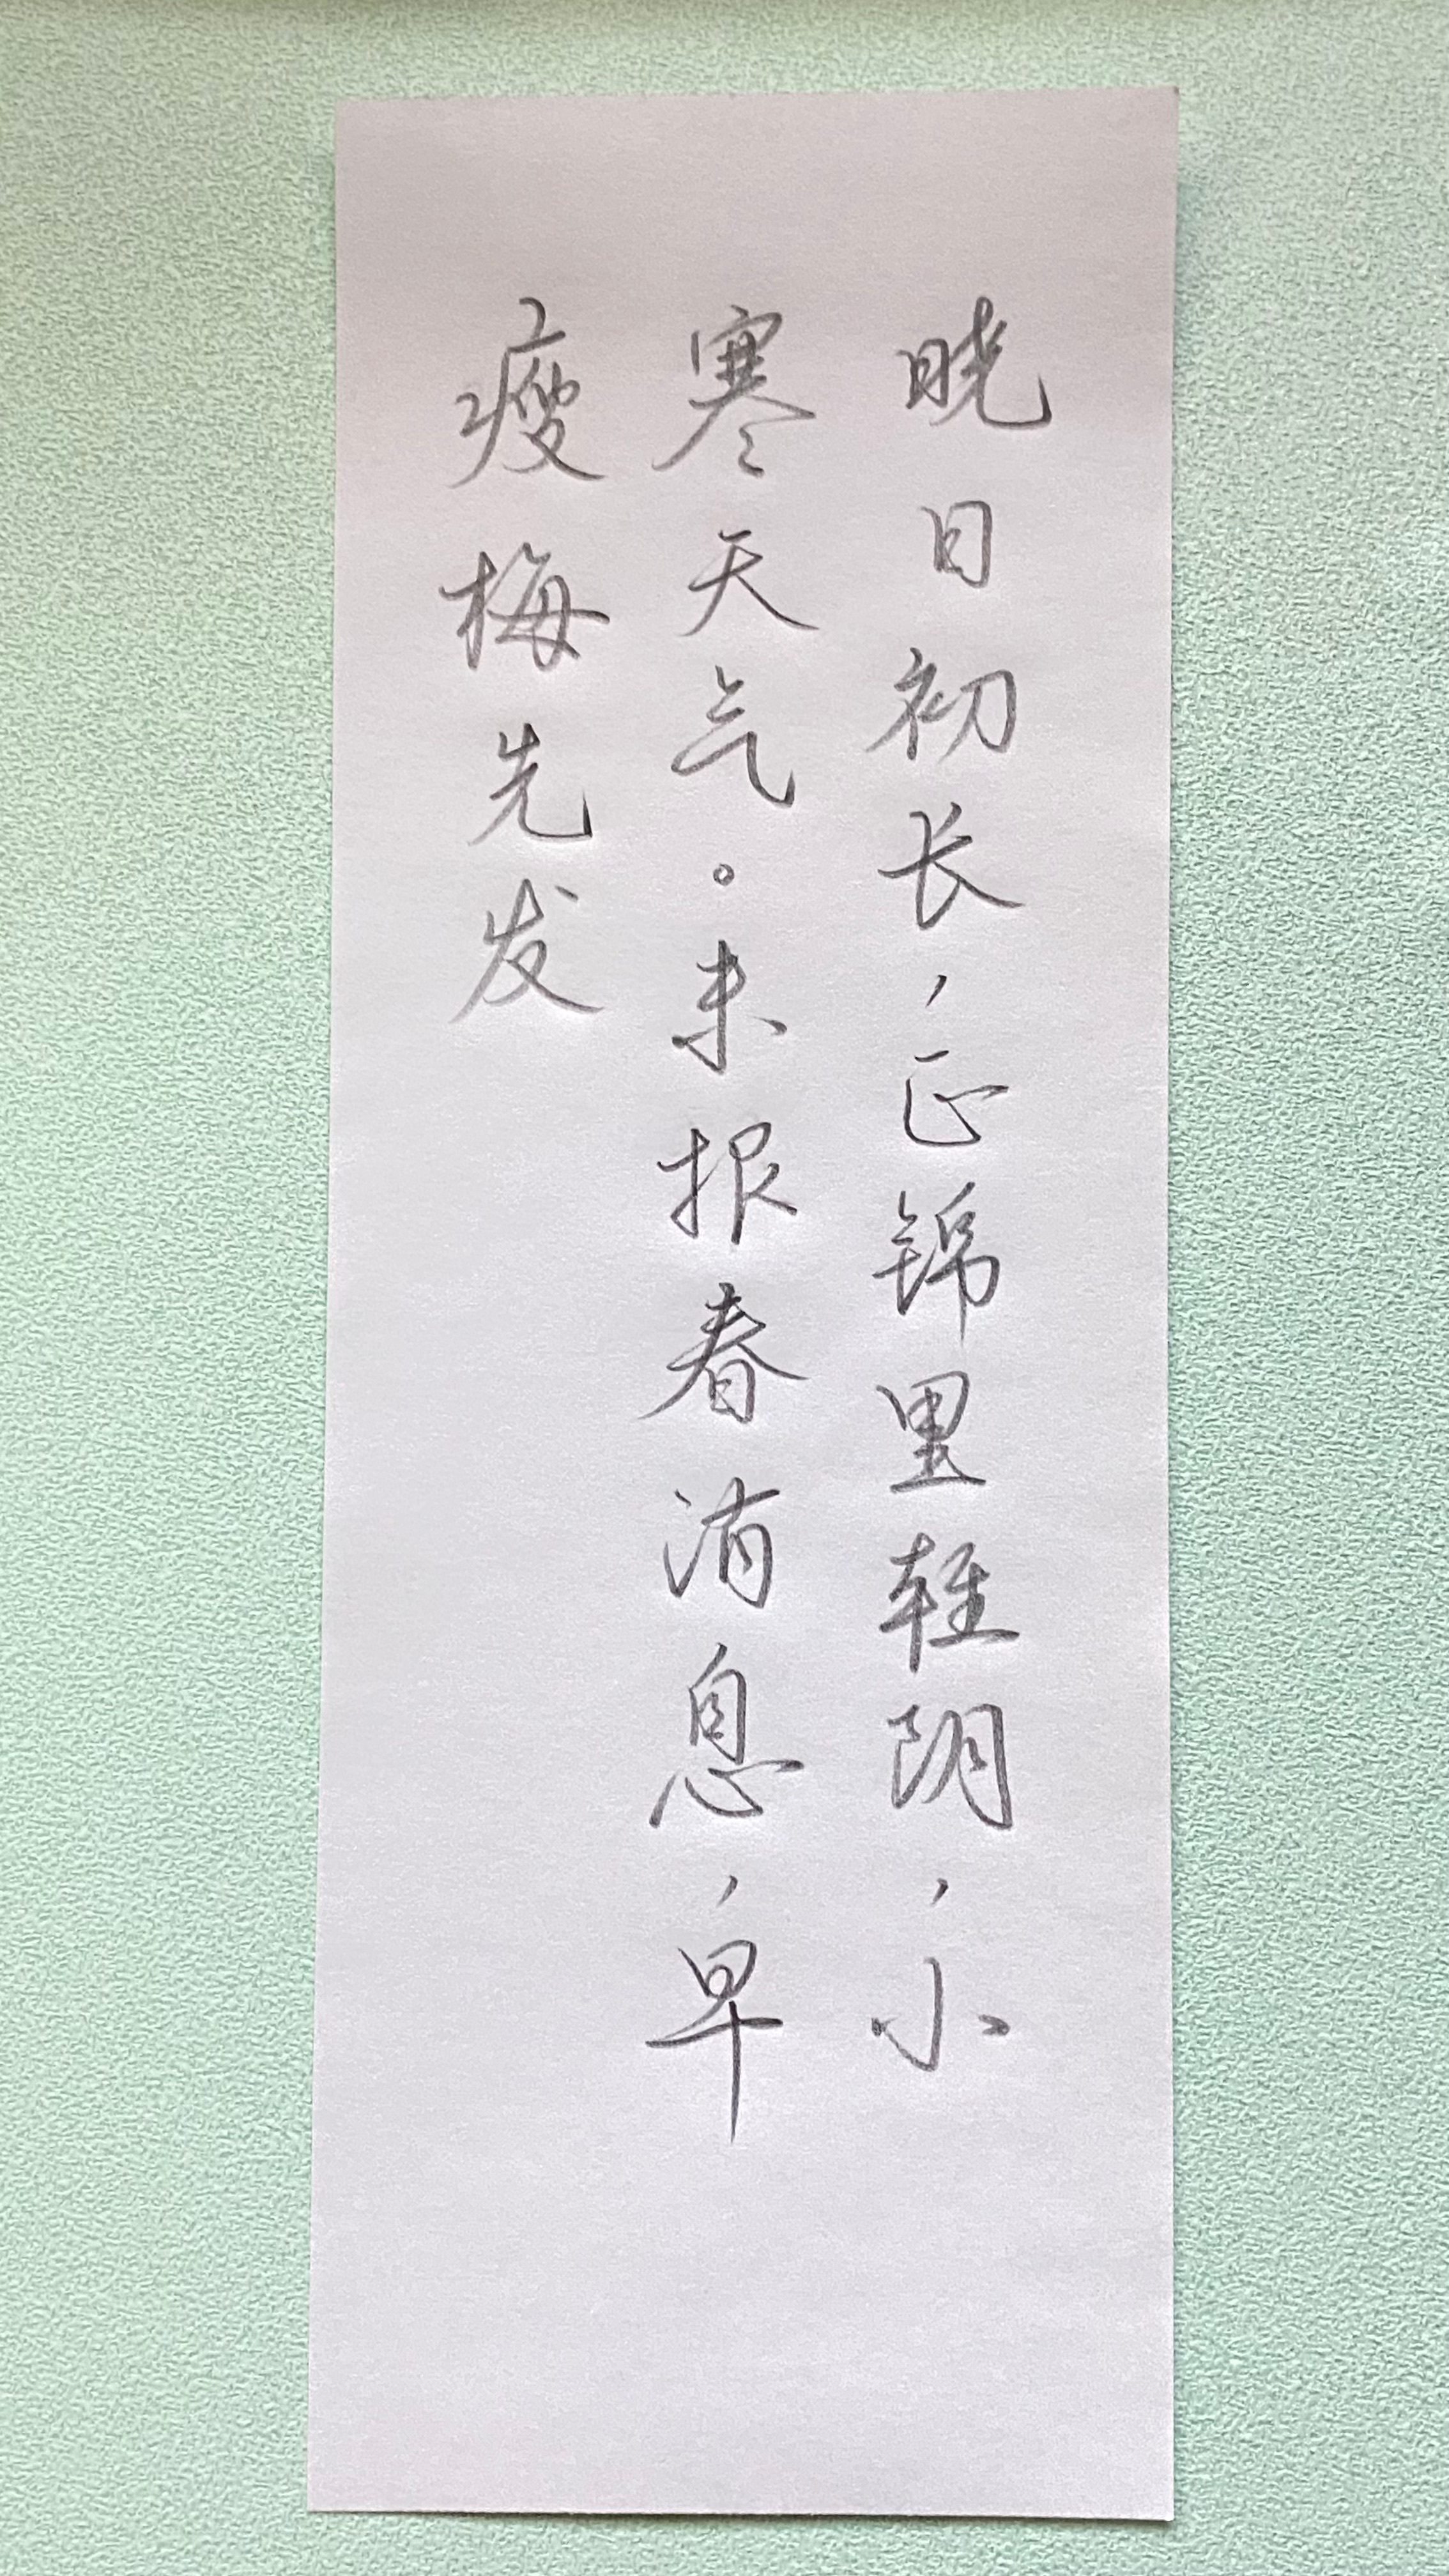 晓日初长，正锦里轻阴，小
寒天气。未报春消息，早
瘦梅先发